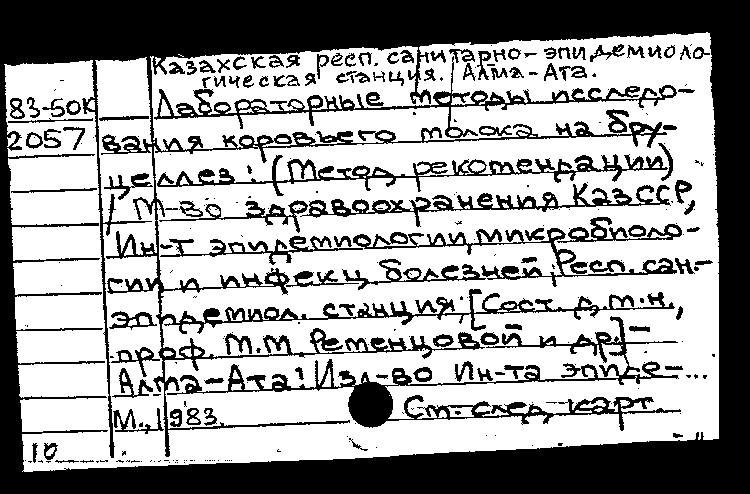 Казахская респ. санитарно-эпидемиоло-
гическая станция. Алма-Ата.
83-50К Лабораторные методы исследо-
2057 вания коровьего молока на бру-
целлез: (Метод. рекомендации)
/ М-во здравоохранения КазССР,
Ин-т эпидемиологии, микробиоло-
гии и инфекц. болезней; Респ. сан.-
эпидемиол. станция; [Сост. д.м.н.,
проф. М.М. Ременцовой и др.]-
Алма-Ата: Изд-во Ин-та эпиде-...
М., 1983. См. след. карт.
10